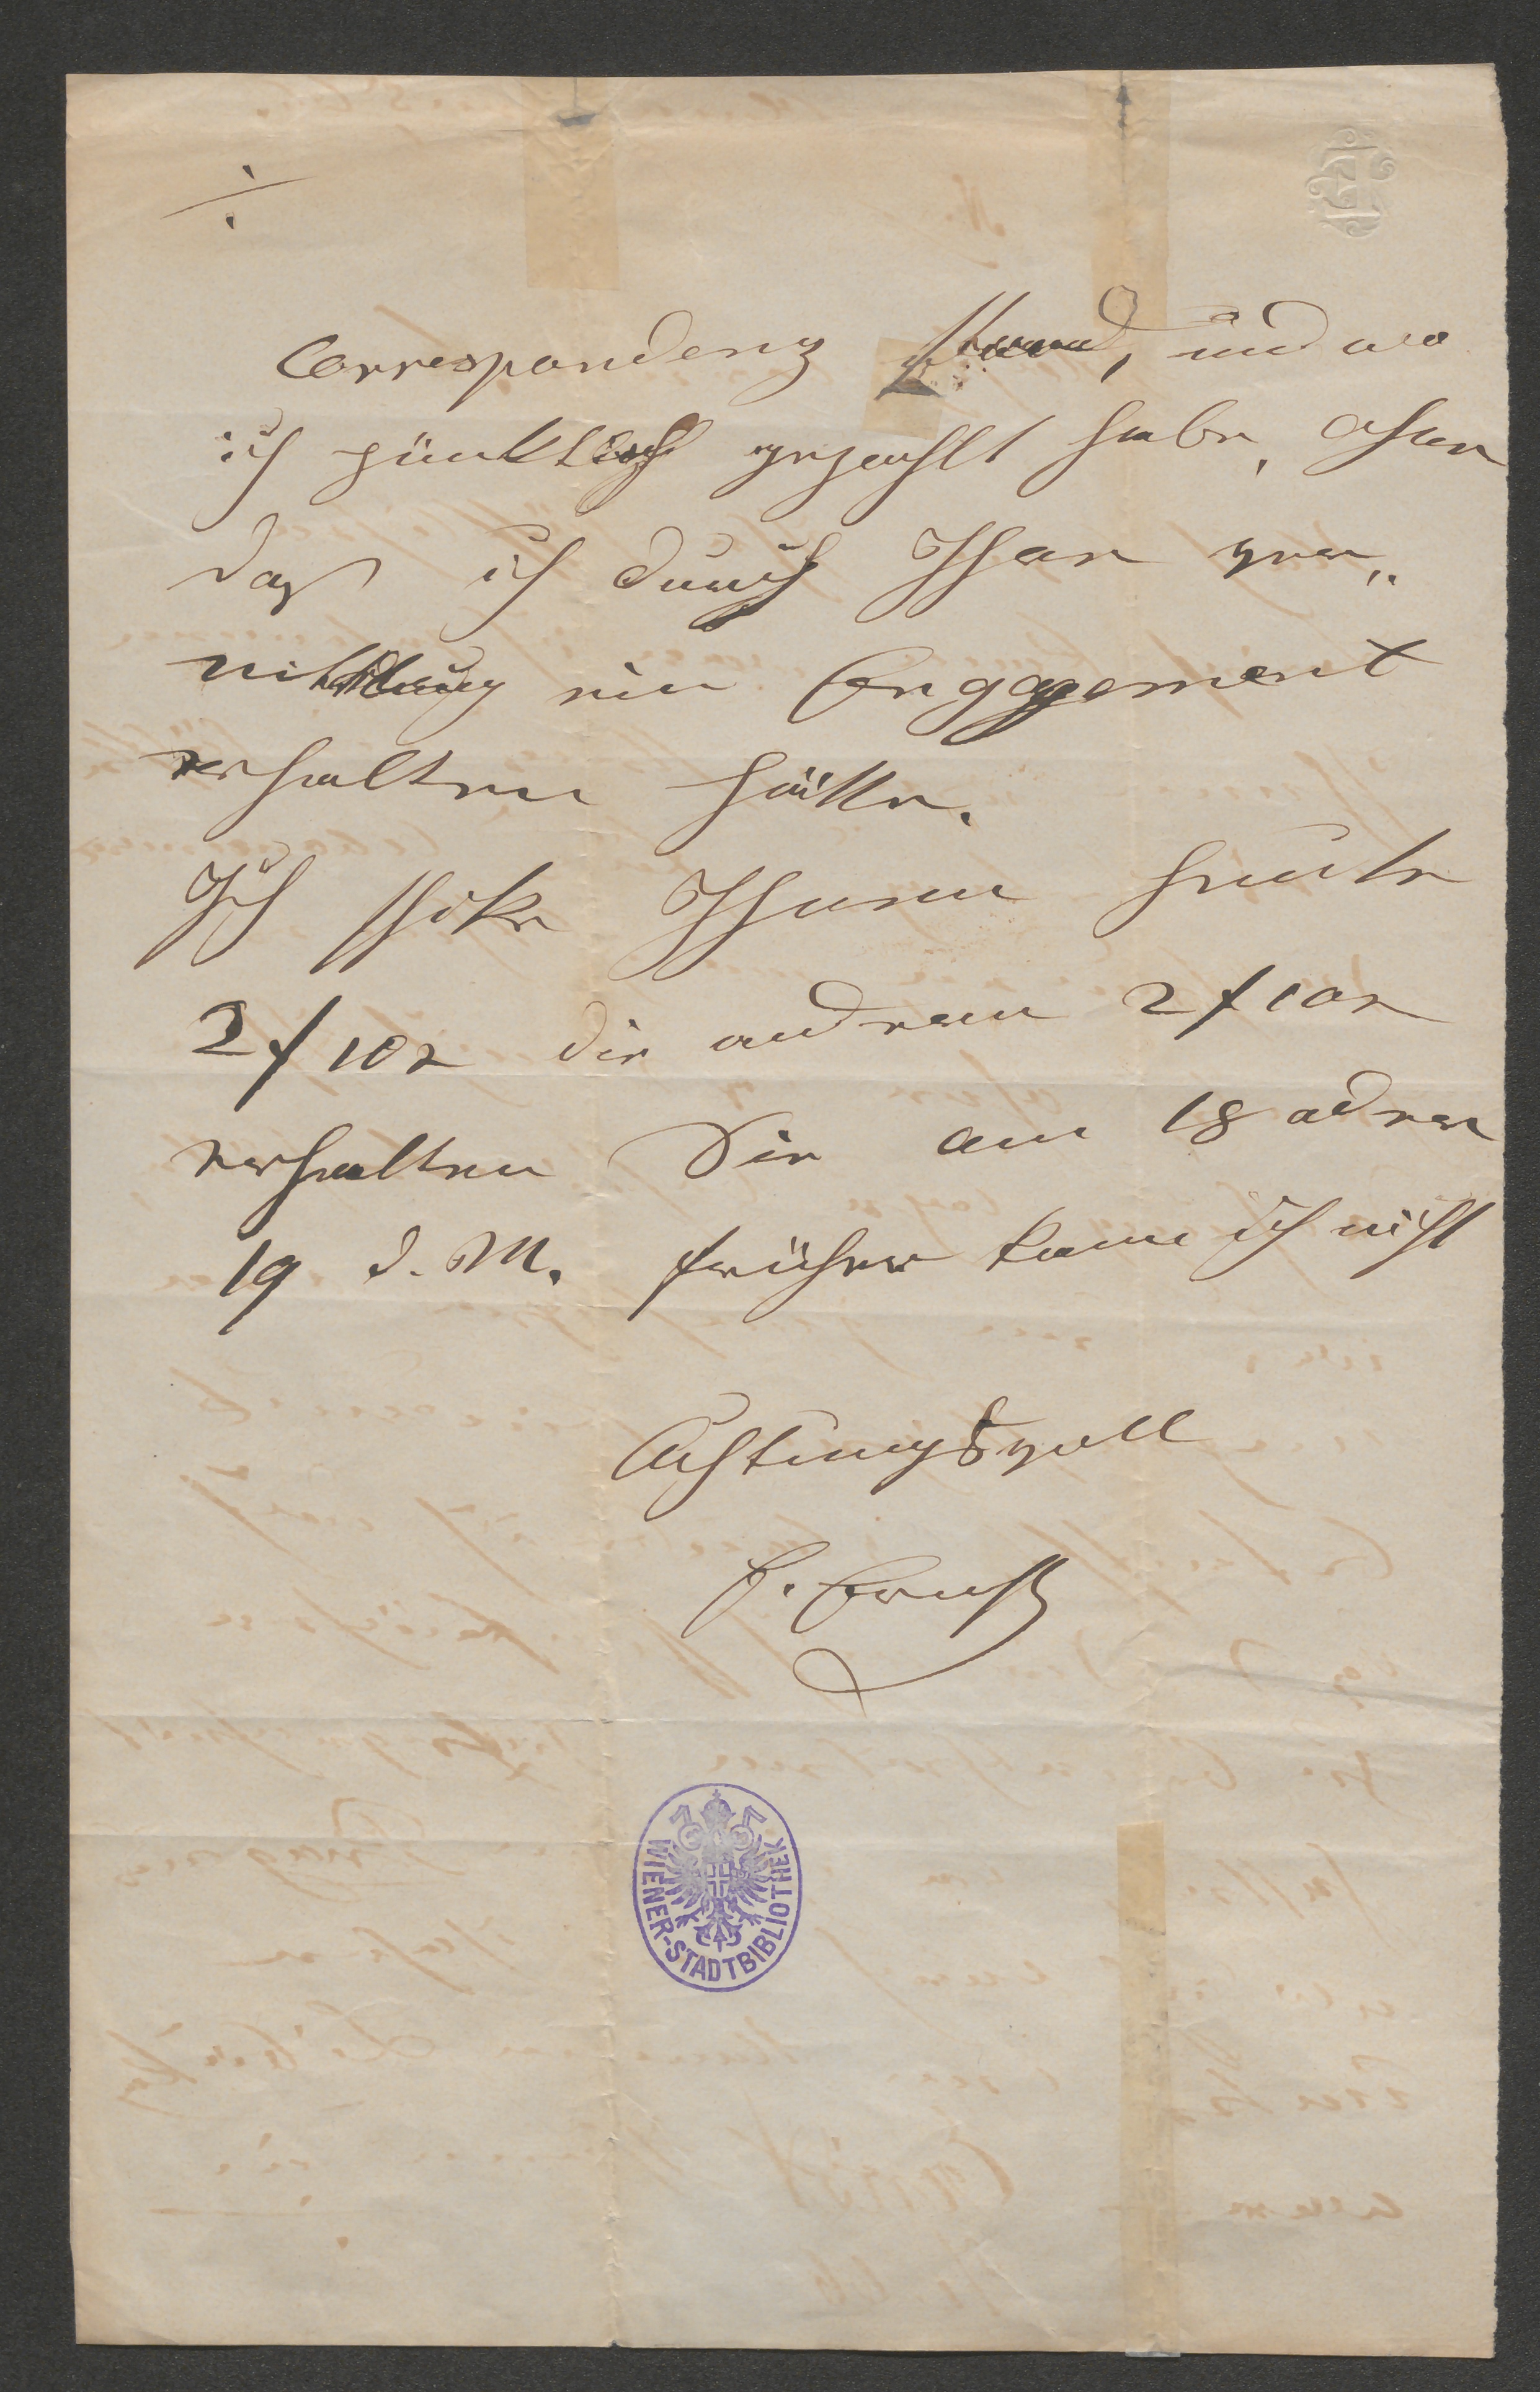 ./.
Correspondenz stand, und wo
ich pünktlich gezahlt habe, ohne
daß ich durch Ihre Ver„
mittlung ein Enggagement
erhalten hätte.
Ich schike Ihnen heute
2 f 10 x die anderen 2 f 10 x
erhalten Sie am 18 oder
19 d. M. früher kann ich nicht
Achtungsvoll
H. Ernst
WIENER-STADTBIBLIOTHEK